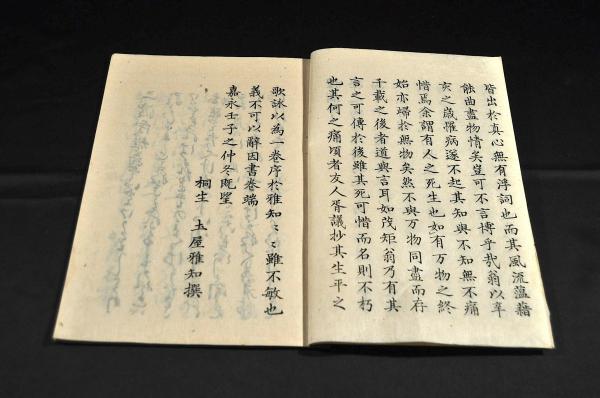 皆出於真心無有浮詞也而其風流蘊藉
能曲盡物情矣豈可不言博乎哉翁以辛
亥之歳罹病遂不起其知與不知無不痛
惜焉余謂有人之死生也如有万物之終
始亦帰於無物矣然不與万物同盡而存
千載之後者道與言耳如茂矩翁乃有其
言之可傳於後雖其死可惜而名則不朽
也其何之痛頃者友人胥議抄其生平之
歌詠以為一巻序於雅知〻〻雖不敏也
義不可以辭因書巻端
嘉永壬子之仲冬既望
桐生 土屋雅知撰